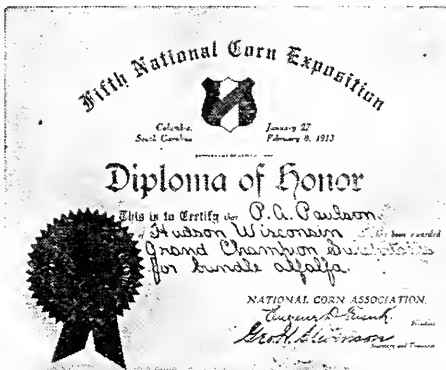 Fifth National Corn Exposition
Columbia, South Carolina
January 27 February 8, 1913
Diploma of Honor
This is to Certify that P.A. Paulson
of Hudson Wisconsin has been awarded
Grand Champion Sweepstakes
for bundle alfalfa.
NATIONAL CORN ASSOCIATION.
Eugene D. Funk
President
Geo. H. Stevenson
Secretary and Treasurer